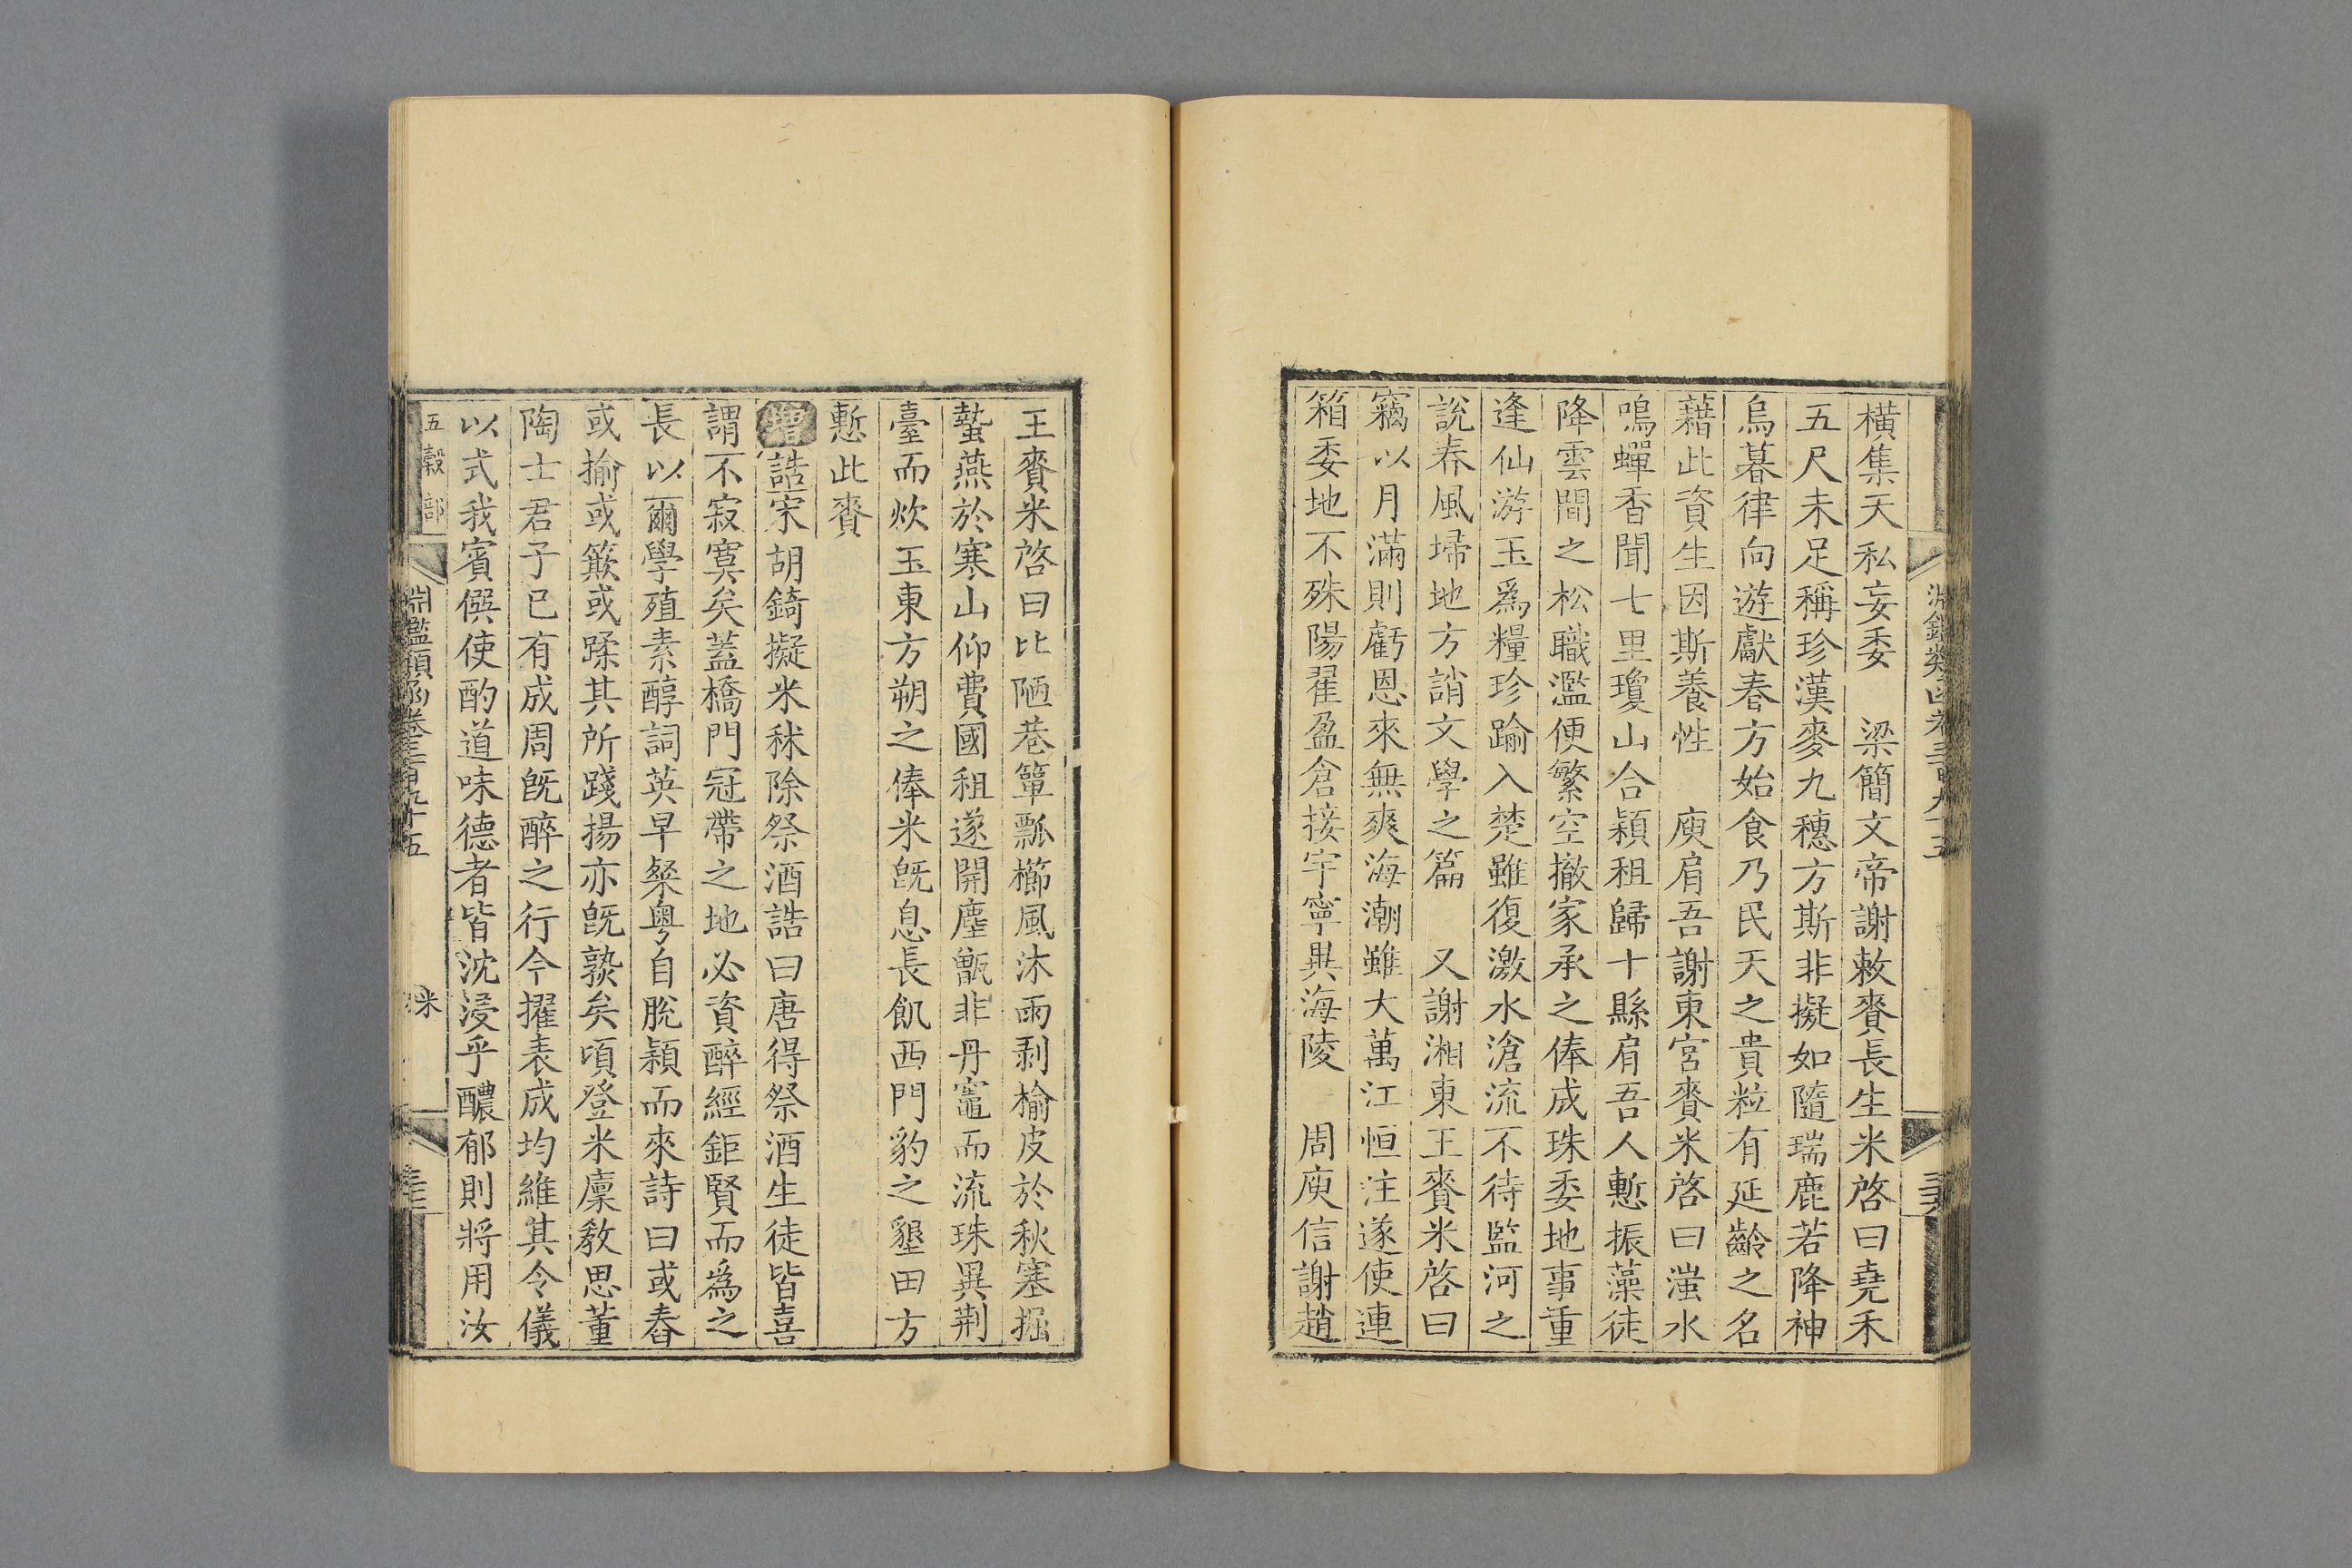 橫集天私妄委　梁簡文帝謝敕賚長生米啓曰堯禾
五尺未足稱珍漢麥九穗方斯非擬如隨瑞鹿若降神
烏暮律向遊獻春方始食乃民天之貴粒有延齡之名
藉此資生因斯養性　庾肩吾謝東宮賚米啓曰滍水
鳴蟬香聞七里瓊山合穎租歸十縣肩吾人慙振藻徒
降雲間之松職濫便繁空撤家承之俸成珠委地事重
逢仙游玉爲糧珍踰入楚雖復激水滄流不待監河之
說春風埽地方誚文學之篇　又謝湘東王賚米啓曰
竊以月滿則虧恩來無爽海潮雖大萬江恒注遂使連
箱委地不殊陽翟盈倉接宇寧異海陵　周庾信謝趙
王賚米啓曰比陋巷簞瓢櫛風沐雨剥榆皮於秋塞掘
蟄燕於寒山仰費國租遂開塵甑非丹竈而流珠異荆
臺而炊玉東方朔之俸米旣息長飢西門豹之墾田方
慙此賚
增誥宋胡錡擬米秫除祭酒誥曰唐得祭酒生徒皆喜
謂不寂寞矣蓋橋門冠帶之地必資醉經鉅賢而爲之
長以爾學殖素醇詞英早粲粤自脫穎而來詩曰或舂
或揄或簸或蹂其所踐揚亦旣孰矣頃登米廩敎思董
陶士君子已有成周旣醉之行今擢表成均維其令儀
以式我賓僎使酌道味德者皆沈浸乎醲郁則將用汝
五穀部
淵鑑類函卷三百九十五
米